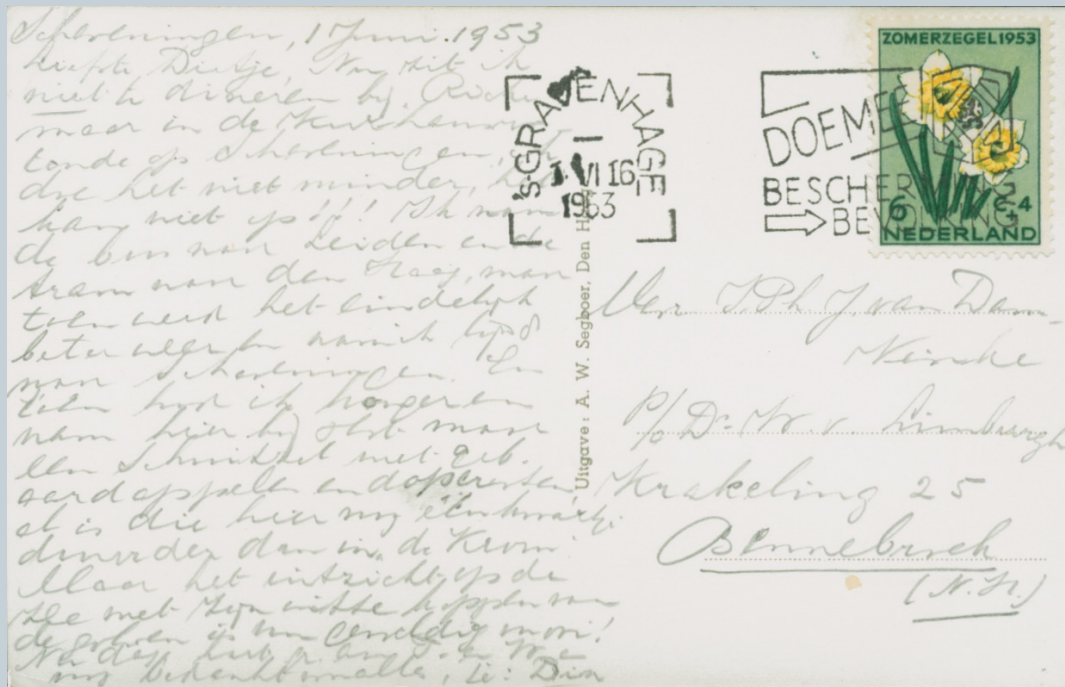 Scheveningen, 1 Juni 1953
Liefste Dietje, Nu zit ik
niet te dineren bij
maar in de Kurhaus
tonde op Scheveningen, en
doe het niet minder, het
kan niet op!!! Ik nam
de bus naar Leiden en de
tram naar den Haag, maar
toen werd het eindelijk
beter weer en nam ik lijn 8
naar Scheveningen. En
toen had ik honger en
nam hier bij een maar
een Schnitzel met geb.
aardappelen en doperwten,
al is die hier nog één kwartje
duurder dan in de Kroon
Maar het uitzicht op de
zee met zijn witte koppen van
de golven is onvermeldig mooi!
Nu dag
nog bedankt v alles, je: Dien
'S GRAVENHAGE
1 VI 16
1953
DOE MEE
BESCHERMING
BEVOLKING
ZOMERZEGEL 1953
6 c+4
NEDERLAND
Uitgave: A. W. Segboer, Den H
Mevr J.Ph.J van Dam-
P/o Dr. W. v. Limburgh
Krakeling 25
Bennebroek
(N.H.)